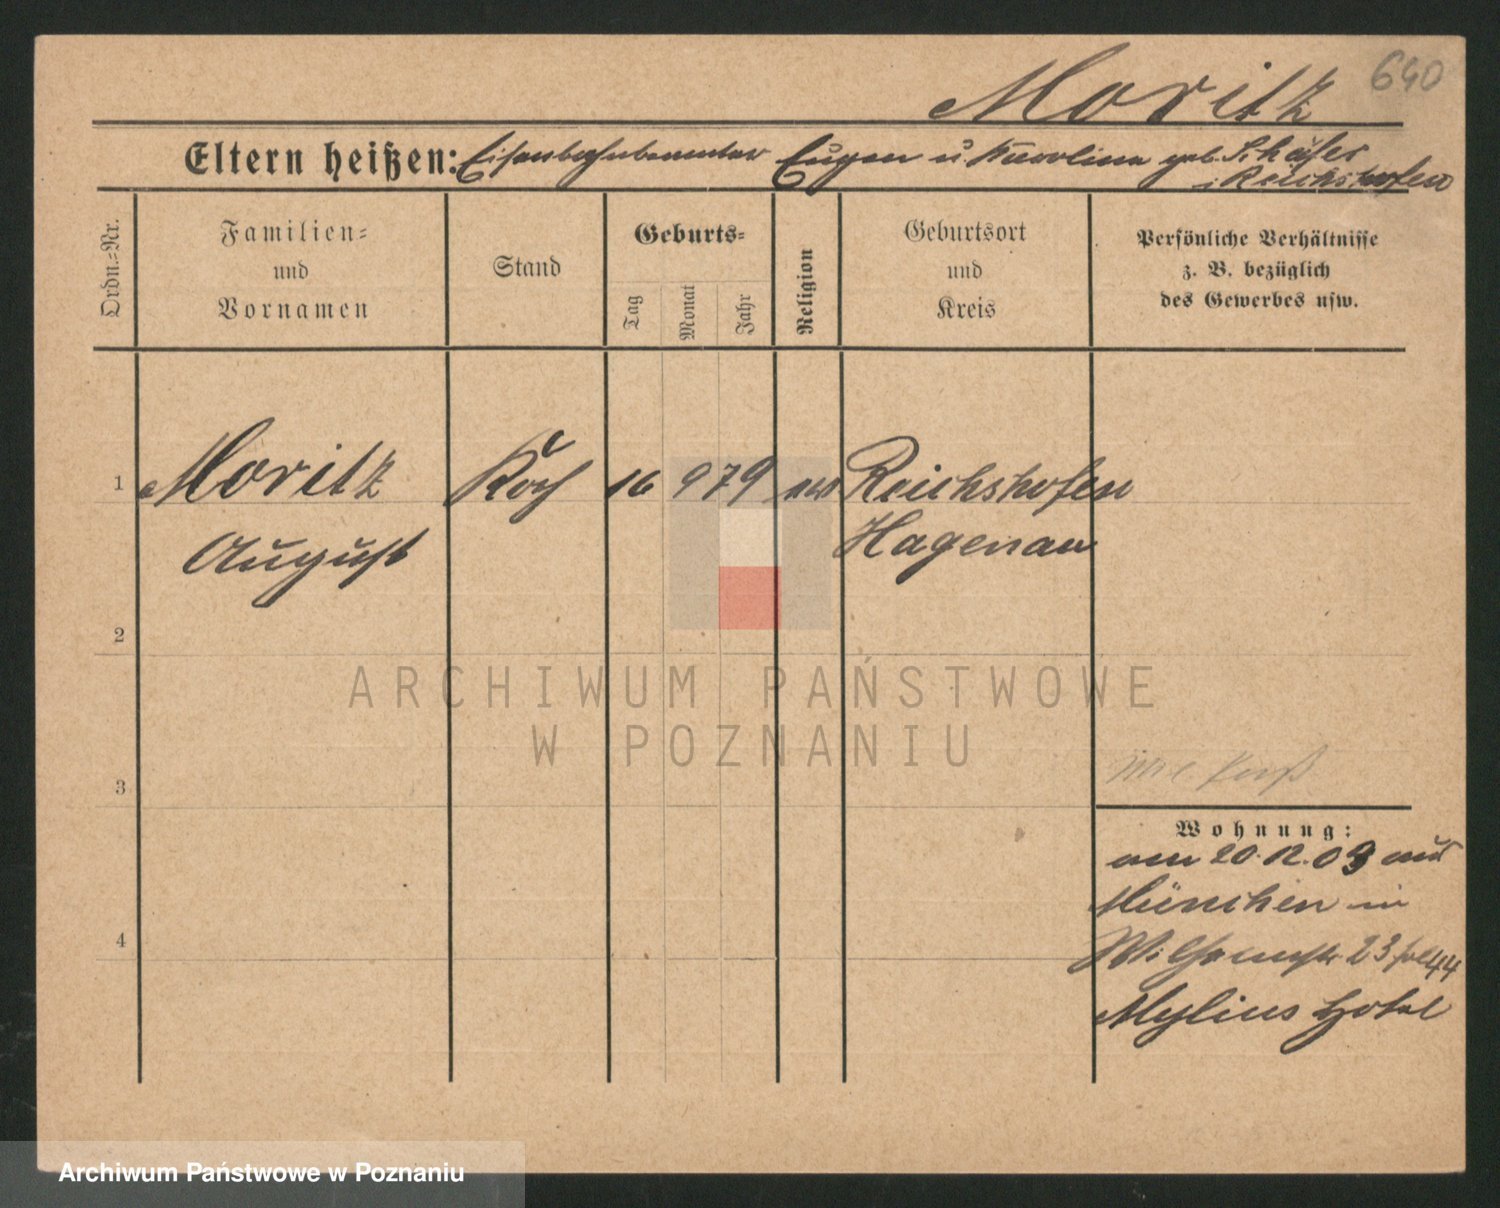 Moritz 640
Eltern heißen: Eisenbahnbeamter Eugen u Karolina geb. Schäfer
i Reichshofen
Ordn.-Nr.
Familien-
und
Vornamen
Stand
Geburts-
Tag
Monat
Jahr
Religion
Geburtsort
und
Kreis
Persönliche Verhältnisse
z. B. bezüglich
des Gewerbes usw.
1 Moritz Koch 16 9 79 Reichshofen
August Hagenau
2
ARCHIWUM PAŃSTWOWE
W POZNANIU
3
Wohnung:
am 20.12.09 aus
München in
Wilhelmstr. 23 44
Mylius Hotel
4
Archiwum Państwowe w Poznaniu